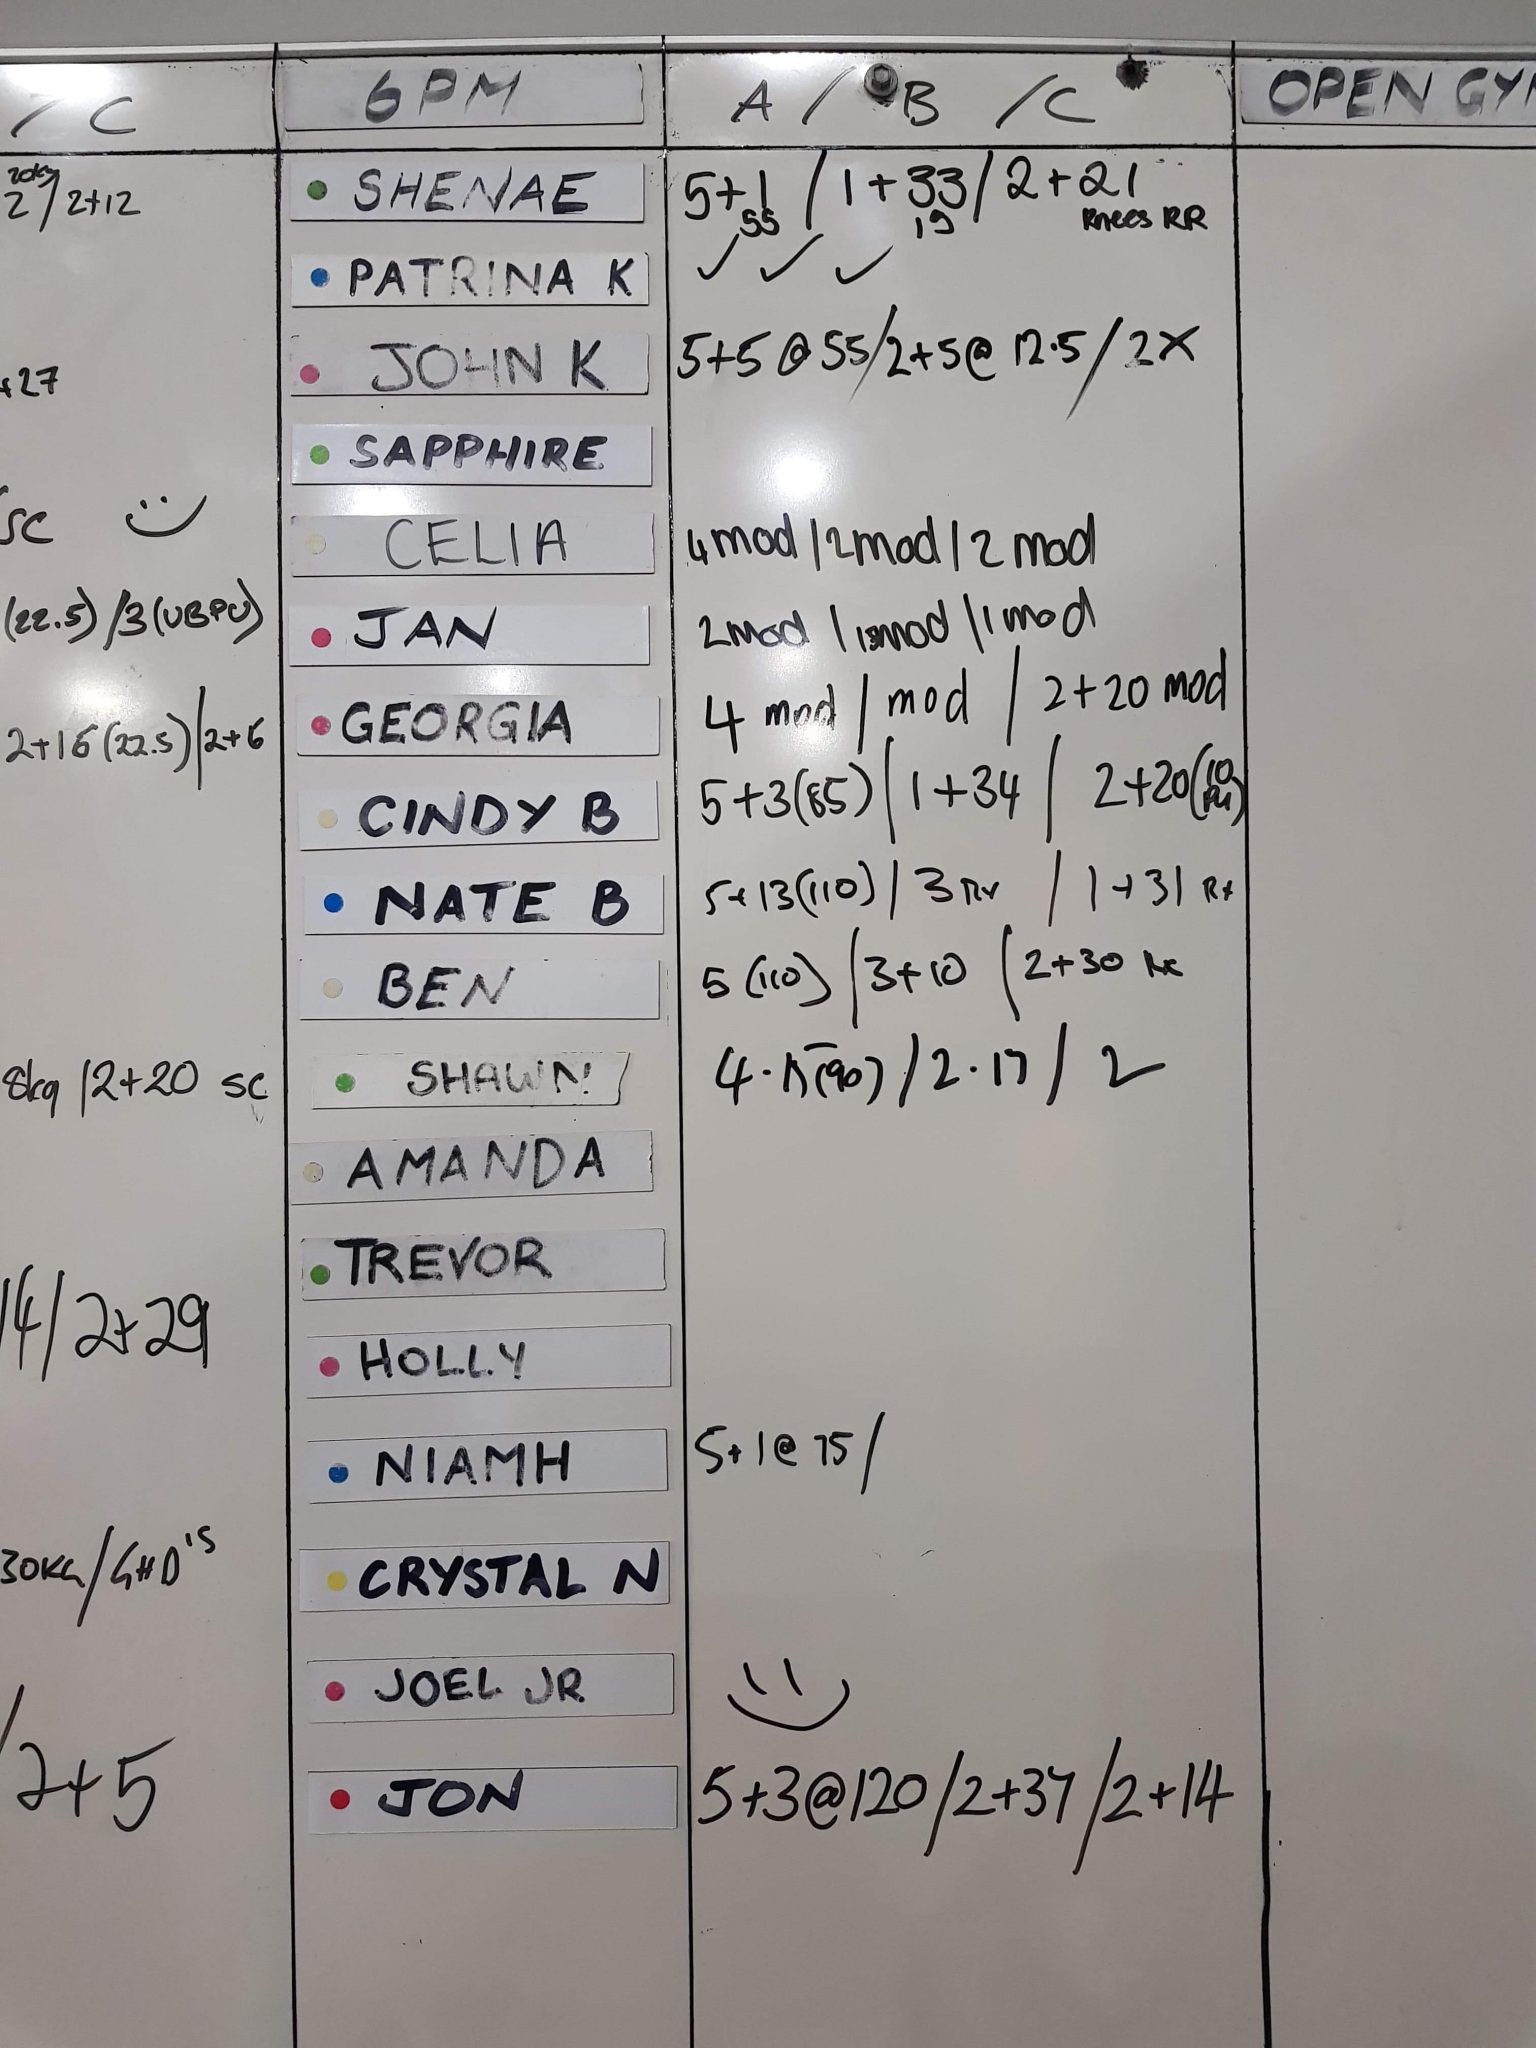 / C 6PM A / B / C OPEN GYM
20kg
2 / 2+12 SHENAE 5+1 / 1+33 / 2+21
55 19 Knees RR
PATRINA K ✓ ✓ ✓
+27 JOHN K 5+5 @ 55 / 2+5 @ 12.5 / 2X
SAPPHIRE
SC CELIA 4 mod / 2 mod / 2 mod
(22.5) / 3 (UBPU) JAN 2 mod / mod / 1 mod
2+16 (22.5) / 2+6 GEORGIA 4 mod / mod / 2+20 mod
CINDY B 5+3 (85) / 1+34 / 2+20 (10
NATE B 5+13 (110) / 3 Rx / 1+31 Rx
BEN 5 (110) / 3+10 / 2+30
8kg / 2+20 SC SHAWN 4. (90) / 2.17 / 2
AMANDA
TREVOR
14 / 2+29 HOLLY
NIAMH 5+1 @ 75 /
30KG / GHD'S CRYSTAL N
JOEL JR
/ 2+5 JON 5+3 @ 120 / 2+37 / 2+14